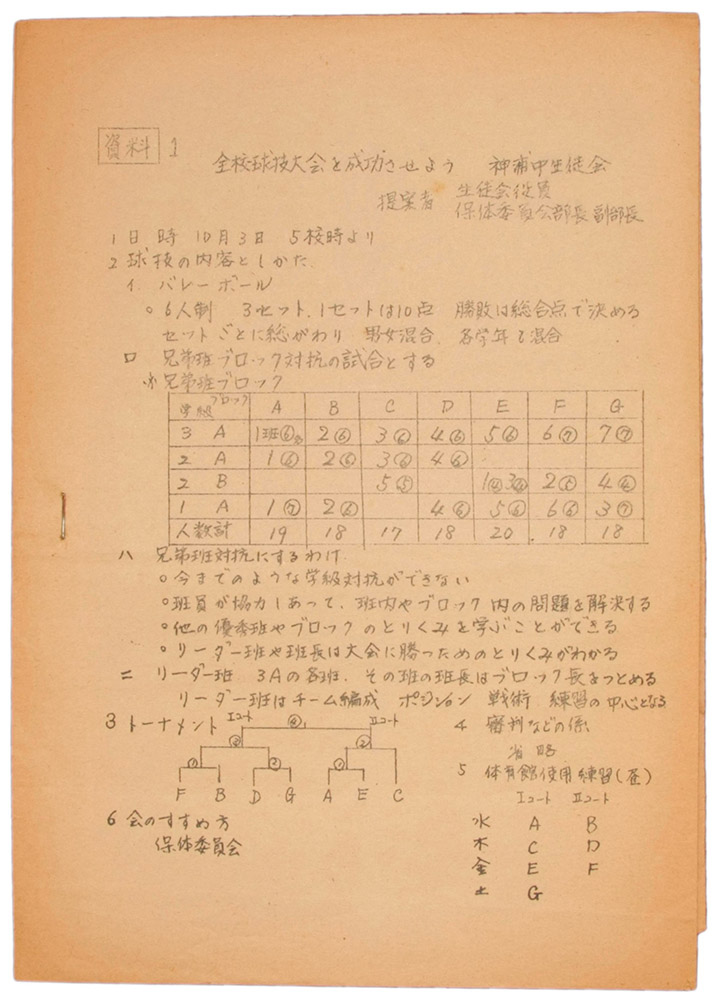 資料 1
全校球技大会を成功させよう 神浦中生徒会
提案者 生徒会役員
保体委員会部長副部長
1 日 時 10月3日 5校時より
2 球技の内容としかた
イ. バレーボール
○ 6人制 3セット、1セットは10点 勝敗は総合点で決める
セットごとに総がわり 男女混合 各学年も混合
ロ 兄弟班ブロック対抗の試合とする
※兄弟班ブロック
学級 ブロック A B C D E F G
3 A 1班⑥ 2⑥ 3⑥ 4⑥ 5⑥ 6⑦ 7⑦
2 A 1⑥ 2⑥ 3⑥ 4⑥
2 B 5⑤ 1④ 3④ 2⑤ 4⑥
1 A 1⑦ 2⑥ 4⑥ 5⑥ 6⑥ 3⑦
人数計 19 18 17 18 20 18 18
ハ 兄弟班対抗にするわけ
○今までのような学級対抗ができない
○班員が協力しあって、班内やブロック内の問題を解決する
○他の優秀班やブロックのとりくみを学ぶことができる
○リーダー班や班長は大会に勝つためのとりくみがわかる
ニ リーダー班 3Aの各班、その班の班長はブロック長をつとめる
リーダー班はチーム編成 ポジション 戦術 練習の中心となる
3 トーナメント Iコート IIコート
① ② ① ②
F B D G A E C
4 審判などの係
省略
5 体育館使用練習(昼)
Iコート IIコート
水 A B
木 C D
金 E F
土 G
6 会のすすめ方
保体委員会